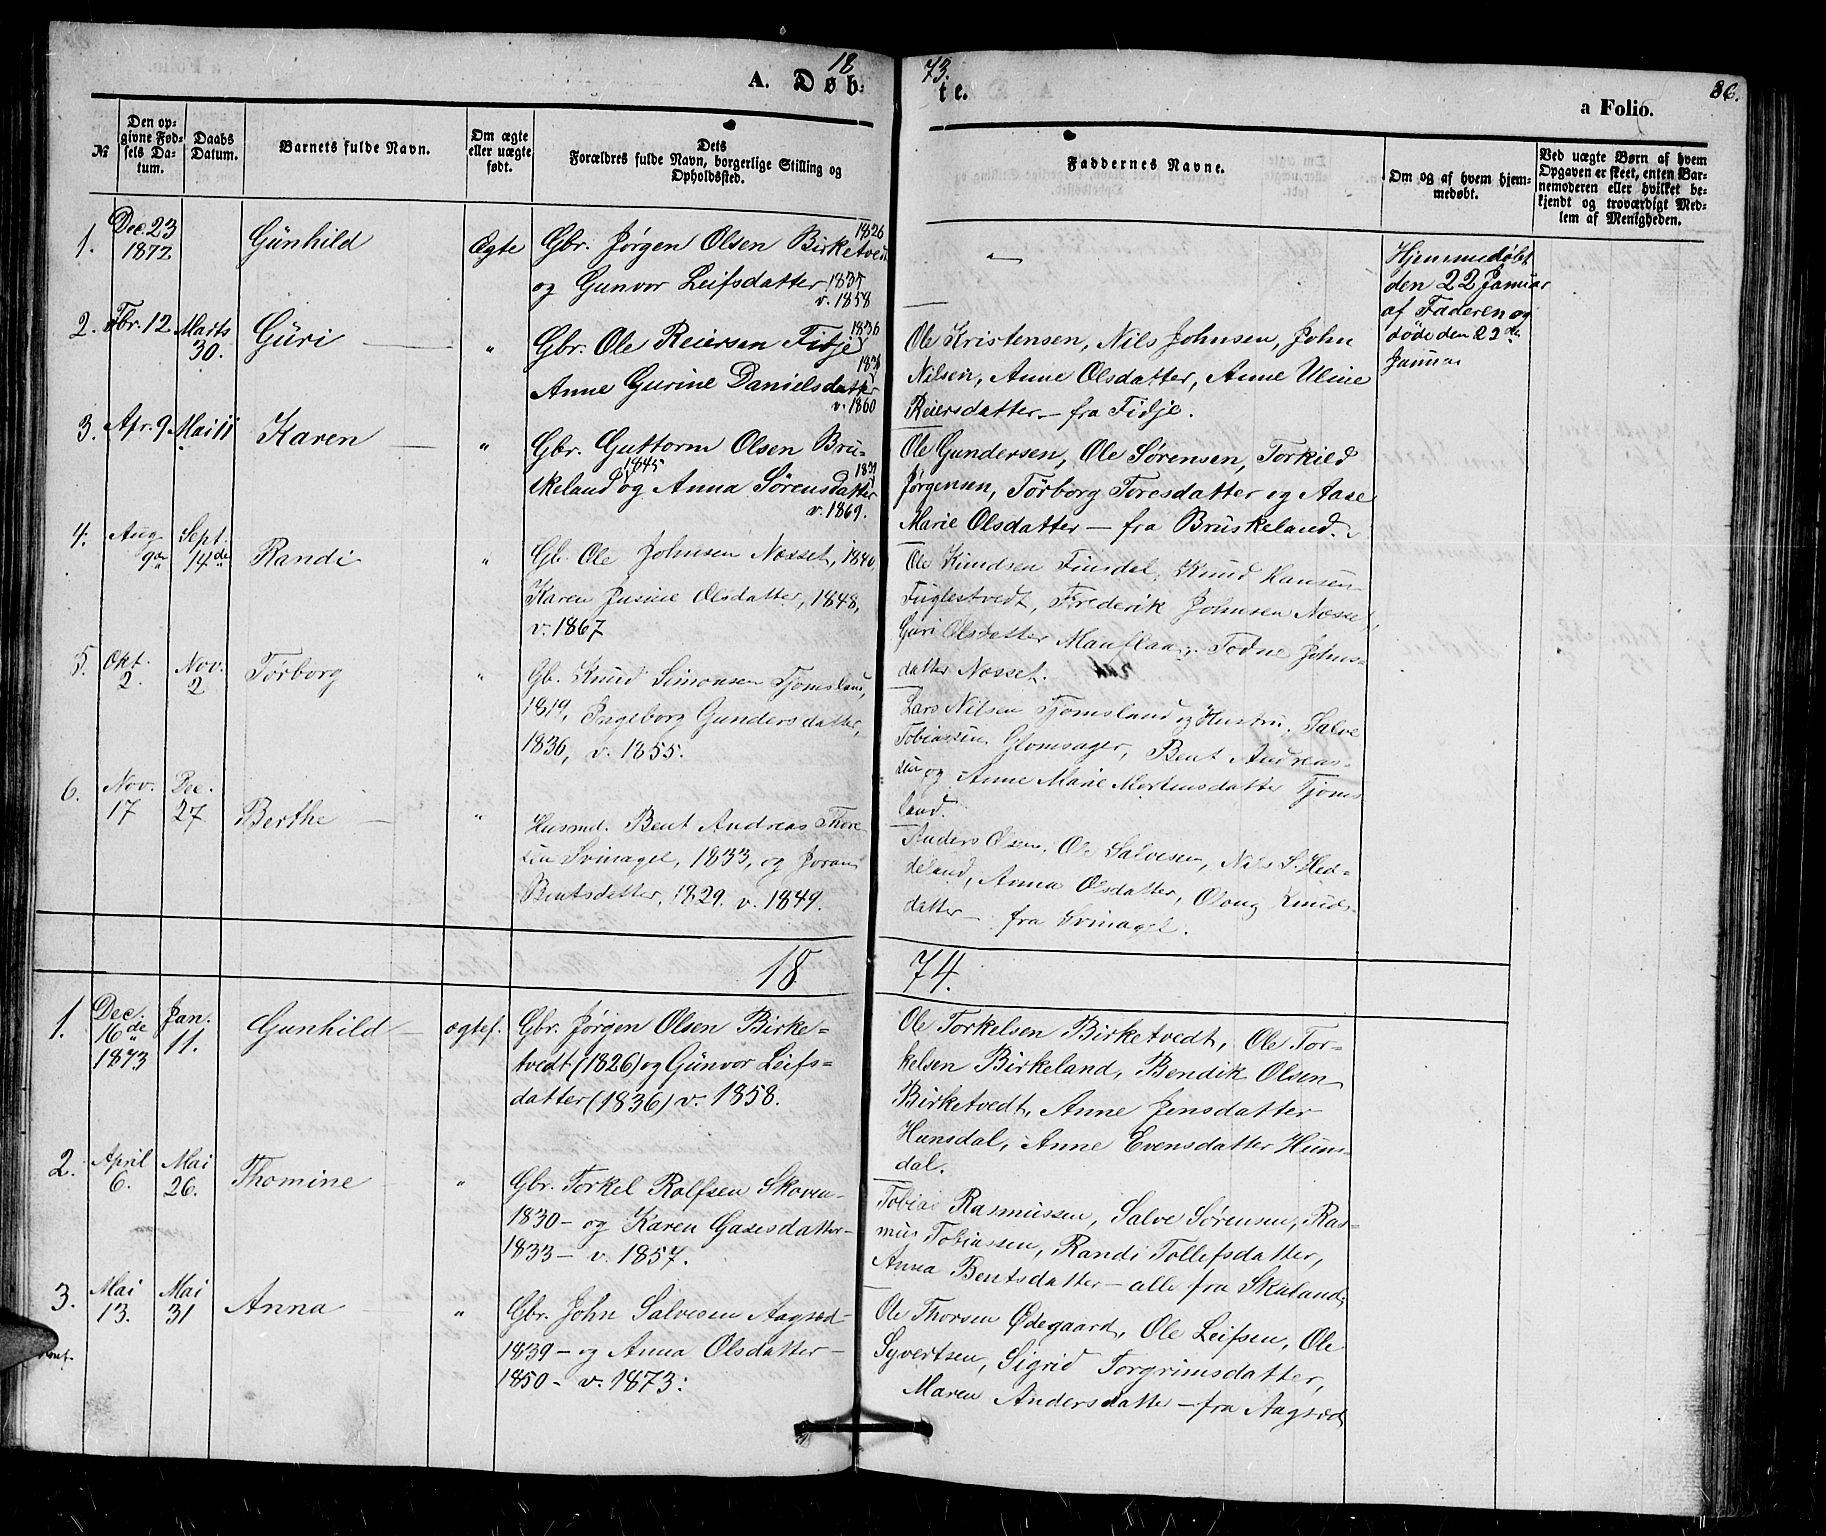 18 73.
A. Døb- te.
a Folio. 86.
№
Den op-
givne Fød-
sels Da-
tum.
Daabs
Datum.
Barnets fulde Navn.
Om ægte
eller uægte
født.
Dets
Forældres fulde Navn, borgerlige Stilling og
Opholdssted.
Faddernes Navne.
Om og af hvem hjem-
medøbt.
Ved uægte Børn af hvem
Opgaven er skeet, enten Bar-
nemoderen eller hvilket be-
kjendt og troværdigt Med-
lem af Menigheden.
1. Dec. 23
1872
Günhild
Ægte
1826
Gbr. Jørgen Olsen Birketvedt
og Gunvor Leifsdatter 1835
v. 1858
—
Hjemmedøbt
den 22 Januar
af Faderen og
døde den 23de
Januar
2. Fbr. 12 Marts
30.
Güri
"
1836
Gbr. Ole Reiersen Fidje
Anne Gurine Danielsdatter
v. 1860
Ole Kristensen, Nils Johnsen, John
Nilsen, Anne Olsdatter, Anne Uline
Reiersdatter — fra Fidje.
3. Apr. 9 Mai 11
Karen
"
Gbr. Guttorm Olsen Bru-
1845
skeland og Anna Sørensdatter
v. 1869.
Ole Gundersen, Ole Sørensen, Torkild
Jørgensen, Torborg Toresdatter og Aase
Marie Olsdatter — fra Bruskeland.
4. Aug
9de
Sept.
14de
Randi
"
Gb. Ole Johnsen Næsset, 1840
Karen Jusine Olsdatter, 1848,
v. 1867
Ole Knudsen Finsdal, Knud Hansen
Fuglestvedt, Frederik Johnsen Næsset,
Guri Olsdatter Mauflaa, Todne Johns-
datter Næsset.
5. Okt.
2.
Nov.
2
Torborg
"
Gb. Knud Simonsen Tjomsland,
1819, Ingeborg Gundersdatter,
1836, v. 1855.
Lars Nilsen Tjomsland og Hustru, Salve
Tobiassen Glomsager, Bent Andreas-
sen og Anne Marie Mortensdatter Tjoms
land.
6. Nov.
17
Dec.
27
Berthe
"
Husmd. Bent Andreas Thore
sen Svinagel, 1833, og Joran
Bentsdatter, 1829. v. 1849.
Anders Olsen, Ole Salvesen, Nils S. Hed-
deland, Anna Olsdatter, Oloug Knuds-
datter — fra Svinagel.
18 74.
1. Dec.
16de
1873
Jan.
11.
Gunhild
ægtef.
Gbr. Jørgen Olsen Birke-
tvedt (1826) og Günvor Leifs-
datter (1836) v. 1858.
Ole Torkelsen Birketvedt, Ole Tor-
kelsen Birkeland, Bendik Olsen
Birketvedt, Anne Jensdatter
Hunsdal, Anne Evensdatter Huns-
dal.
2. April
6.
Mai
26.
Thomine
"
Gbr. Torkel Rolfsen Skoven-
1830 - og Karen Gasesdatter-
1833 - v. 1857.
Tobias Rasmussen, Salve Sørensen, Ras-
mus Tobiassen, Randi Tollefsdatter,
Anna Bentsdatter - alle fra Skuland;
3. Mai
13.
Mai
31
Anna
"
Gbr. John Salvesen Aagsæd-
1839 - og Anna Olsdatter -
1850 - v. 1873:
Ole Thorsen Ødegaard, Ole Leifsen, Ole
Syvertsen, Sigrid Torgrimsdatter,
Maren Andersdatter - fra Aagsæd